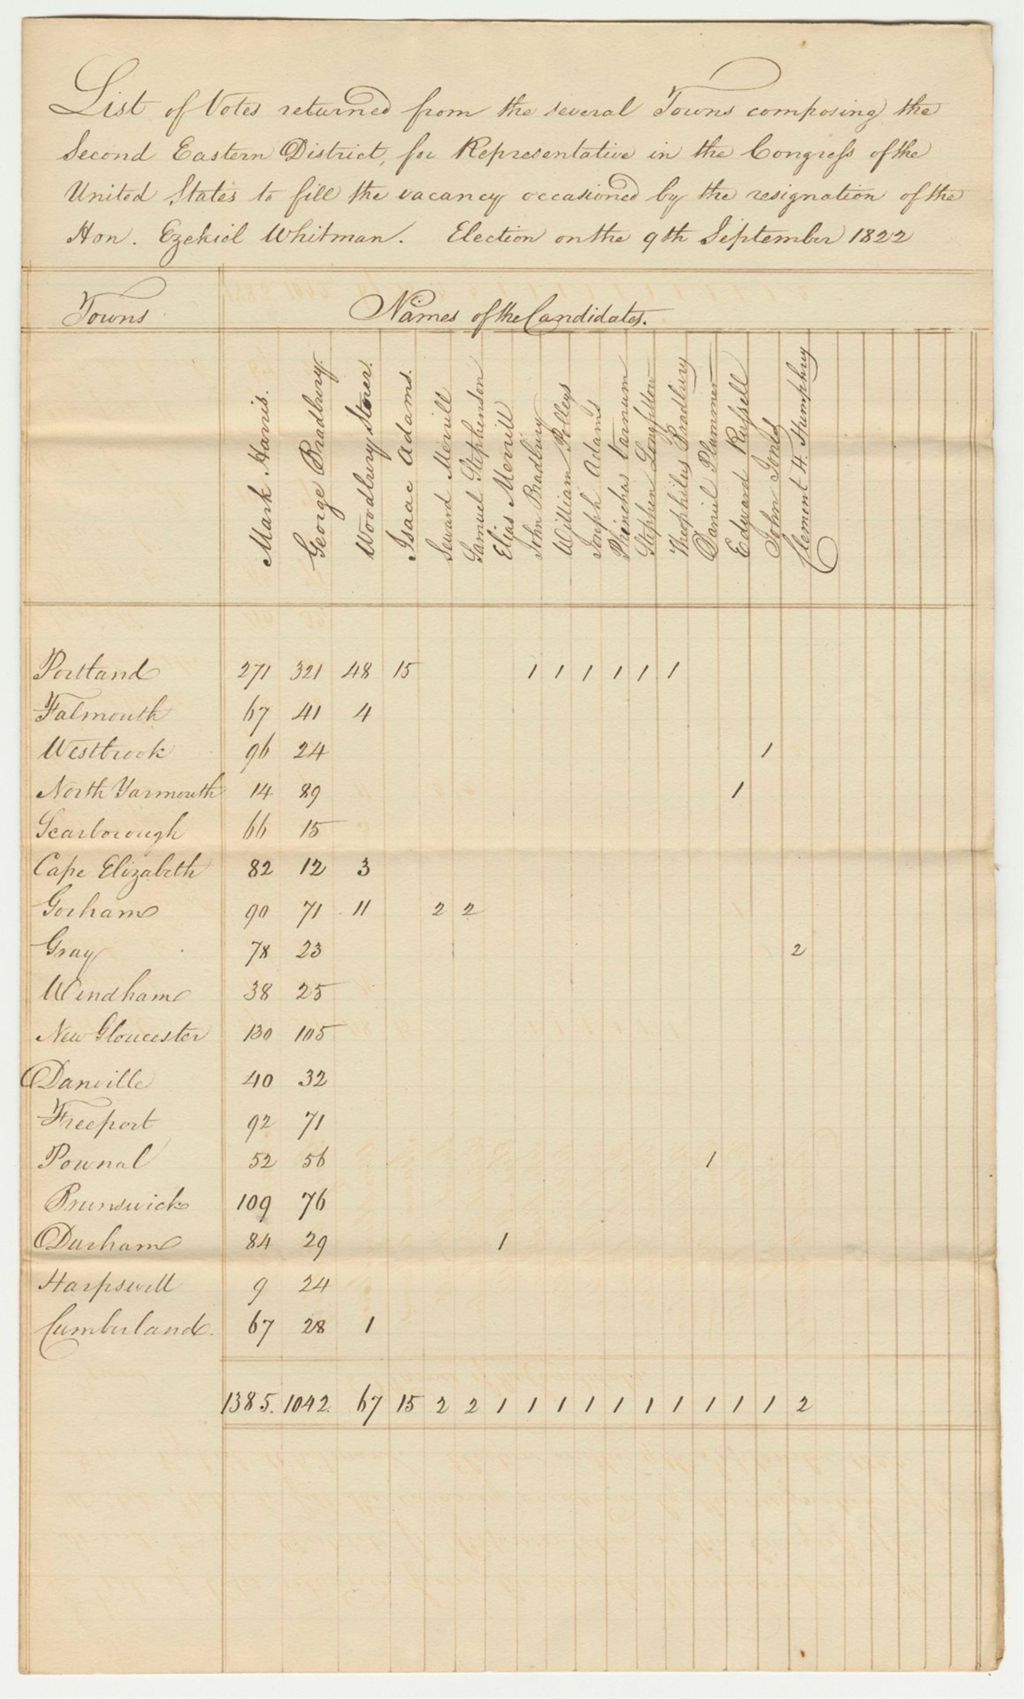 List of Votes returned from the several Towns composing the
Second Eastern District, for Representative in the Congress of the
United States to fill the vacancy occasioned by the resignation of the
Hon. Ezekiel Whitman. Election on the 9th September 1822
Towns Names of the Candidates.
Mark Harris.
George Bradbury.
Woodbury Storer.
Isaac Adams.
Seward Merrill
Samuel Stephenson
Elias Merrill
John Bradbury
William Polleys
Joseph Adams
Phinehas Varnum
Stephen Longfellow
Theophilus Bradbury
Daniel Plummer
Edward Russell
John Jones
Clement H. Humphry
Portland 271 321 48 15 1 1 1 1 1 1
Falmouth 67 41 4
Westbrook 96 24 1
North Yarmouth 14 89 1
Scarborough 66 15
Cape Elizabeth 82 12 3
Gorham 90 71 11 2 2
Gray 78 23 2
Windham 38 25
New Gloucester 130 105
Danville 40 32
Freeport 92 71
Pownal 52 56 1
Brunswick 109 76
Durham 84 29 1
Harpswell 9 24
Cumberland. 67 28 1
1385. 1042. 67 15 2 2 1 1 1 1 1 1 1 1 1 1 2